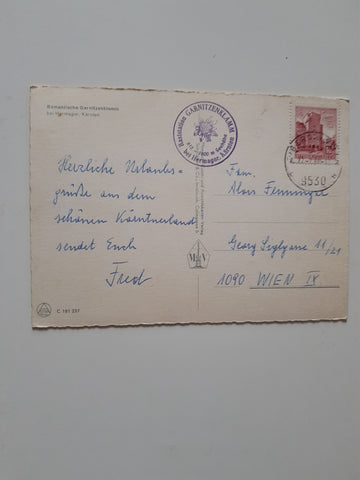 Romantische Garnitzenklamm
bei Hermagor, Kärnten
Raststation GARNITZENKLAMM
bei Hermagor, Kärnten
9530
Herzliche Urlaubs-
grüße aus dem
schönen Kärntnerland
sendet Euch
Fred
Fam.
Alois Fenninger
Georg Siglgasse 11/21
1090 WIEN IX
M V
C 181 257